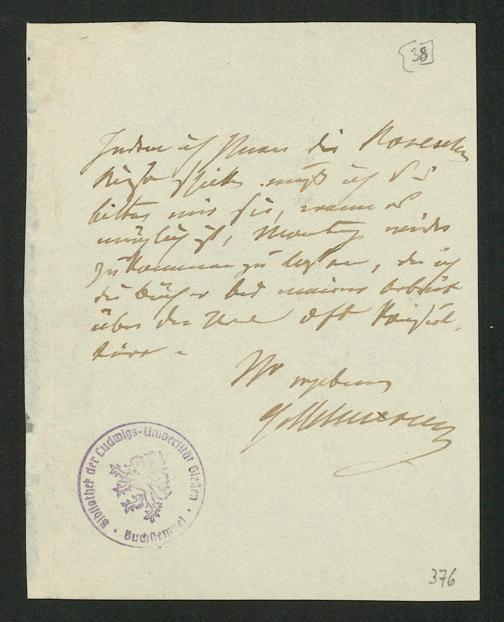 38
Indem ich Ihnen die
schicke, muß ich Sie
bitten mir sie, wenn es
möglich ist, Montag wieder
zukommen zu lassen, da ich
die Bücher bei meiner Arbeit
über die oft
Ihr ergebener
Bibliothek der Ludwigs-Universität Gießen
• Buchstempel •
376